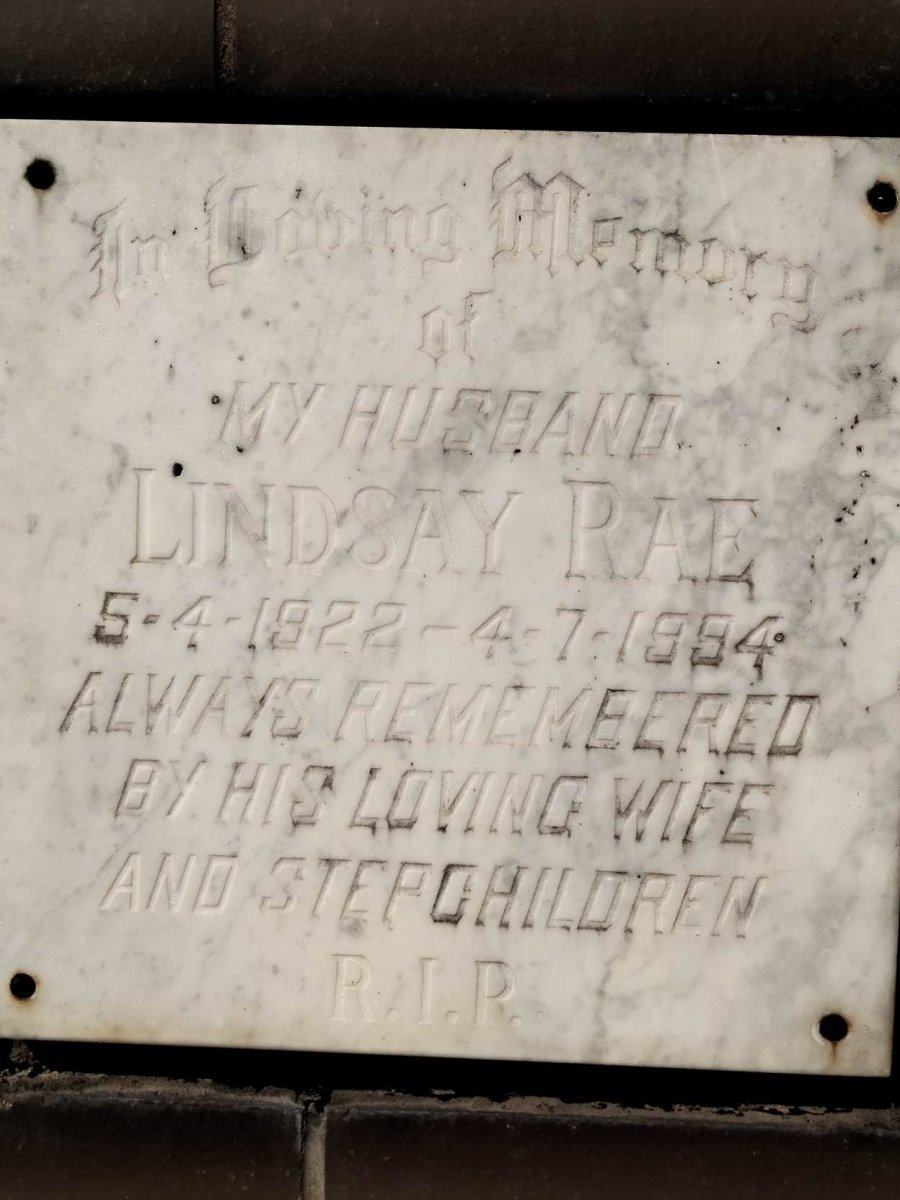 In Loving Memory
of
MY HUSBAND
LINDSAY RAE
5-4-1922 - 4-7-1994
ALWAYS REMEMBERED
BY HIS LOVING WIFE
AND STEPCHILDREN
R.I.P.